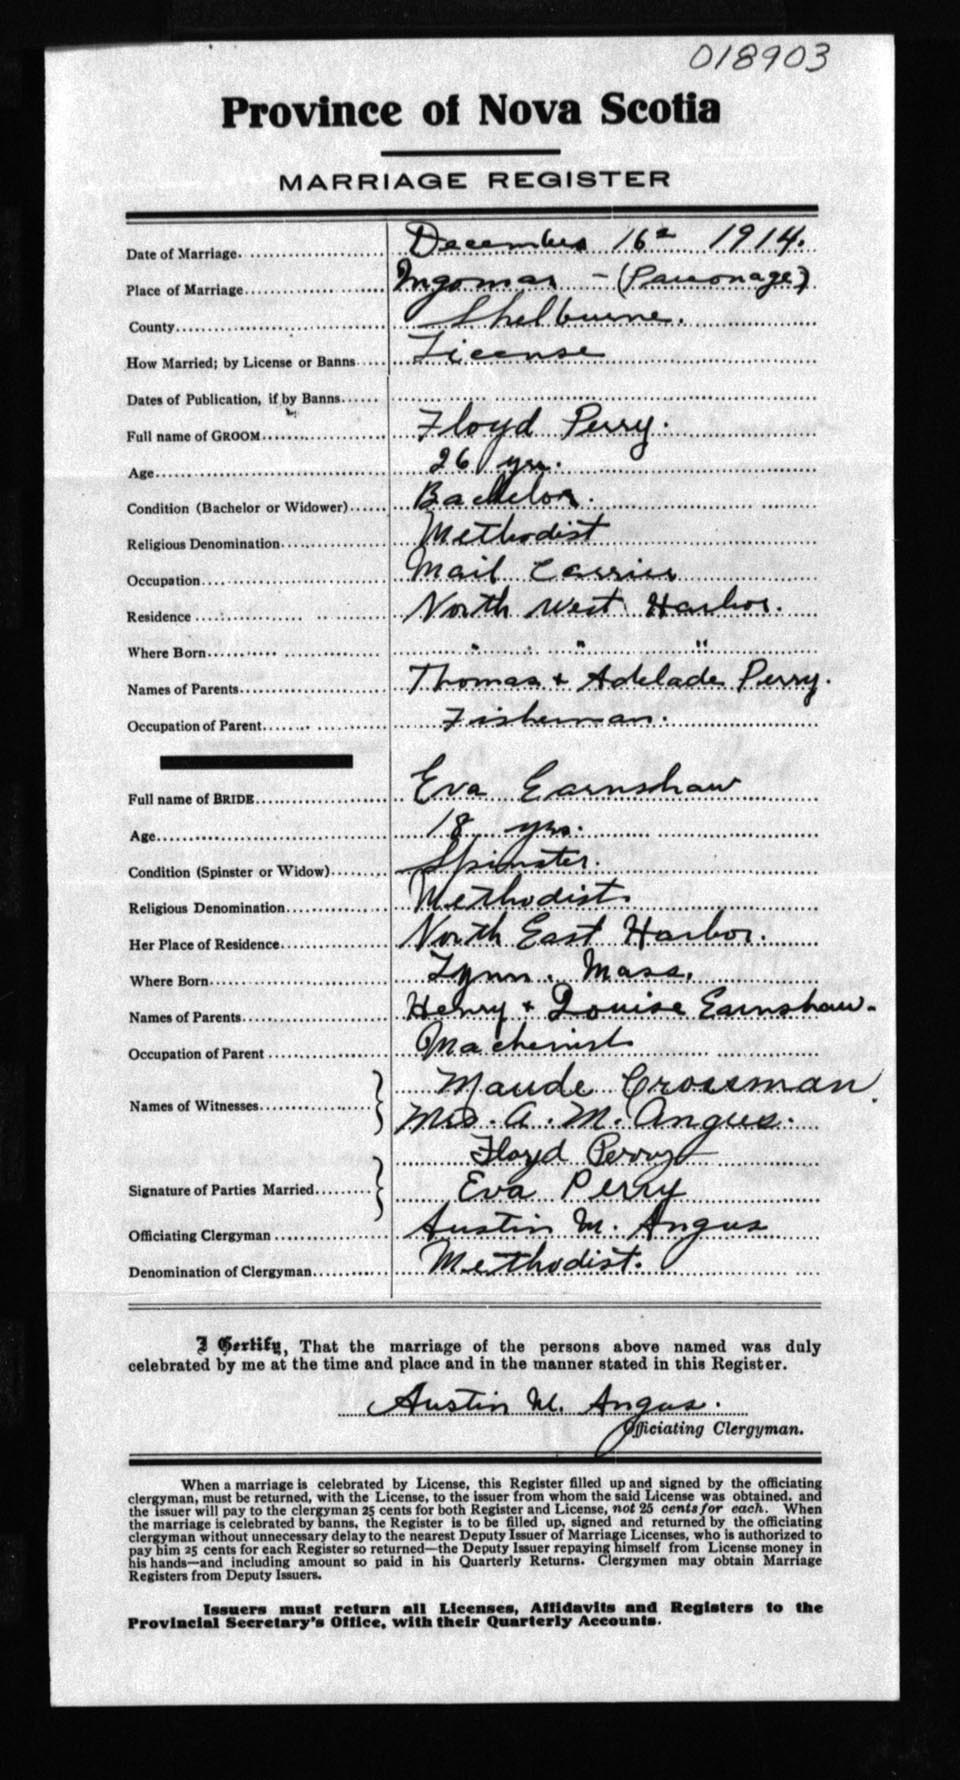 018903
Province of Nova Scotia
MARRIAGE REGISTER
Date of Marriage December 16th 1914.
Place of Marriage Ingomar - (Parsonage)
County Shelburne.
How Married; by License or Banns License
Dates of Publication, if by Banns
Full name of GROOM Floyd Perry.
Age 26 yrs.
Condition (Bachelor or Widower) Bachelor.
Religious Denomination Methodist
Occupation Mail Carrier
Residence North West Harbor.
Where Born " " "
Names of Parents Thomas + Adelade Perry.
Occupation of Parent Fisherman.
Full name of BRIDE Eva Earnshaw
Age 18 yrs.
Condition (Spinster or Widow) Spinster.
Religious Denomination Methodist.
Her Place of Residence North East Harbor.
Where Born Lynn. Mass.
Names of Parents Henry + Louise Earnshaw.
Occupation of Parent Machenist
Names of Witnesses Maude Crossman.
Mrs. A. M. Angus.
Floyd Perry
Signature of Parties Married Eva Perry
Officiating Clergyman Austin M. Angus
Denomination of Clergyman Methodist.
I Certify, That the marriage of the persons above named was duly
celebrated by me at the time and place and in the manner stated in this Register.
Austin M. Angus.
Officiating Clergyman.
When a marriage is celebrated by License, this Register filled up and signed by the officiating
clergyman, must be returned, with the License, to the issuer from whom the said License was obtained, and
the issuer will pay to the clergyman 25 cents for both Register and License, not 25 cents for each. When
the marriage is celebrated by banns, the Register is to be filled up, signed and returned by the officiating
clergyman without unnecessary delay to the nearest Deputy Issuer of Marriage Licenses, who is authorized to
pay him 25 cents for each Register so returned—the Deputy Issuer repaying himself from License money in
his hands—and including amount so paid in his Quarterly Returns. Clergymen may obtain Marriage
Registers from Deputy Issuers.
Issuers must return all Licenses, Affidavits and Registers to the
Provincial Secretary's Office, with their Quarterly Accounts.